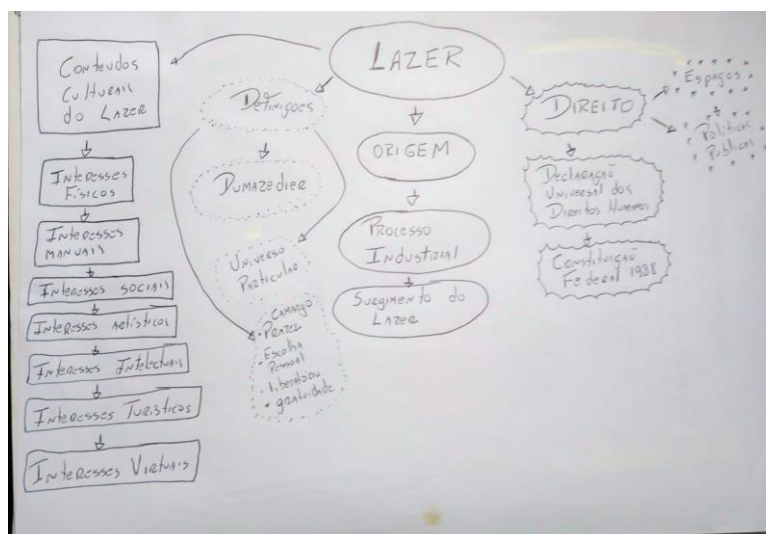 LAZER
Conteudos
Culturais
do Lazer
Interesses
Físicos
Interesses
manuais
Interesses sociais
Interesses Artísticos
Interesses Intelectuais
Interesses Turísticos
Interesses Virtuais
Definiçoes
Dumazedier
Universo
Particular
Camargo
• Prazer
• Escolha
Pessoal
• liberatório
• gratuidade
ORIGEM
Processo
Industrial
Surgimento do
Lazer
DIREITO
Declaração
Universal dos
Direitos Humanos
Constituição
Federal 1988
Espaços
Políticas
Públicas